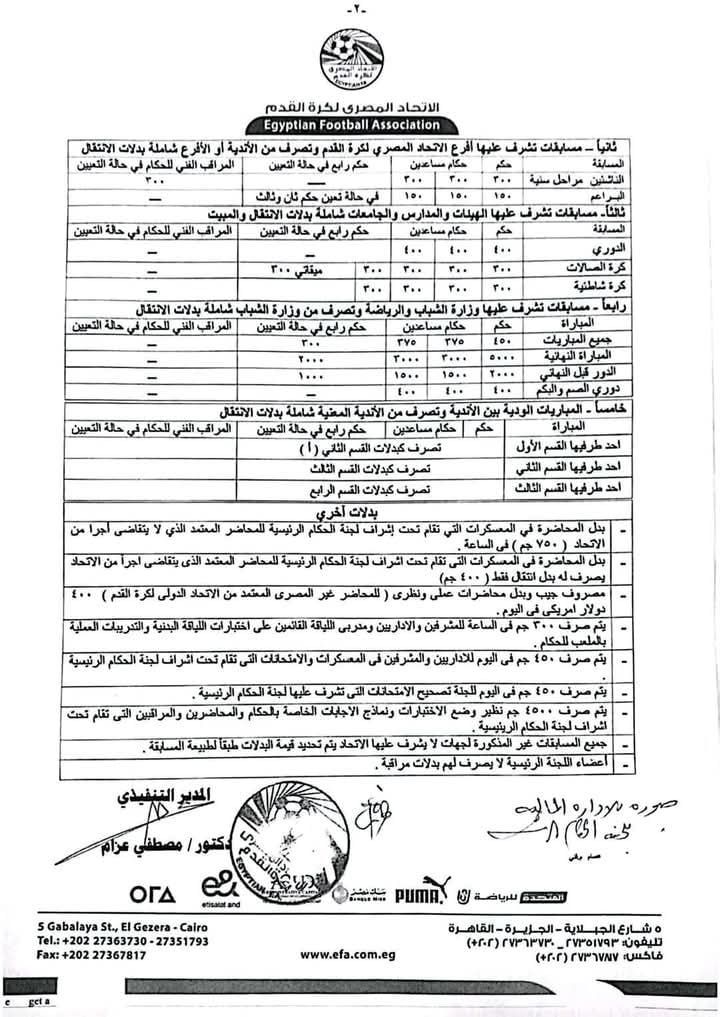 -٢-
الاتحاد المصرى لكرة القدم
EGYPTIAN FA
الاتحاد المصرى لكرة القدم
Egyptian Football Association
ثانياً – مسابقات تشرف عليها أفرع الاتحاد المصري لكرة القدم وتصرف من الأندية أو الأفرع شاملة بدلات الانتقال
المسابقة حكم حكام مساعدين حكم رابع في حالة التعيين المراقب الفني للحكام في حالة التعيين
الناشئين مراحل سنية ٣٠٠ ٣٠٠ ٣٠٠ — ٣٠٠
البراعم ١٥٠ ١٥٠ ١٥٠ في حالة تعين حكم ثان وثالث —
ثالثاً- مسابقات تشرف عليها الهيئات والمدارس والجامعات شاملة بدلات الانتقال والمبيت
المسابقة حكم حكام مساعدين حكم رابع في حالة التعيين المراقب الفني للحكام في حالة التعيين
الدوري ٤٠٠ ٤٠٠ ٤٠٠ — —
كرة الصالات ٣٠٠ ٣٠٠ ٣٠٠ ٣٠٠ ميقاتي ٣٠٠ —
كرة شاطئية ٣٠٠ ٣٠٠ ٣٠٠ ٣٠٠ —
رابعاً - مسابقات تشرف عليها وزارة الشباب والرياضة وتصرف من وزارة الشباب شاملة بدلات الانتقال
المباراة حكم حكام مساعدين حكم رابع في حالة التعيين المراقب الفني للحكام في حالة التعيين
جميع المباريات ٤٥٠ ٣٧٥ ٣٧٥ ٣٠٠ —
المباراة النهائية ٥٠٠٠ ٣٠٠٠ ٣٠٠٠ ٢٠٠٠ —
الدور قبل النهائي ٢٠٠٠ ١٥٠٠ ١٥٠٠ ١٠٠٠ —
دوري الصم والبكم ٤٠٠ ٤٠٠ ٤٠٠ — —
خامساً - المباريات الودية بين الأندية وتصرف من الأندية المعنية شاملة بدلات الانتقال
المباراة حكم حكام مساعدين حكم رابع في حالة التعيين المراقب الفني للحكام في حالة التعيين
احد طرفيها القسم الأول تصرف كبدلات القسم الثاني ( أ )
احد طرفيها القسم الثاني تصرف كبدلات القسم الثالث
احد طرفيها القسم الثالث تصرف كبدلات القسم الرابع
بدلات أخري
- بدل المحاضرة في المعسكرات التي تقام تحت إشراف لجنة الحكام الرئيسية للمحاضر المعتمد الذي لا يتقاضى أجرا من
الاتحاد ( ٧٥٠ جم ) فى الساعة .
- بدل المحاضرة فى المعسكرات التى تقام تحت اشراف لجنة الحكام الرئيسية للمحاضر المعتمد الذى يتقاضى اجراً من الاتحاد
يصرف له بدل انتقال فقط ( ٤٠٠ جم)
- مصروف جيب وبدل محاضرات عملى ونظرى ( للمحاضر غير المصرى المعتمد من الاتحاد الدولى لكرة القدم ) ٤٠٠
دولار امريكى فى اليوم .
- يتم صرف ٣٠٠ جم فى الساعة للمشرفين والاداريين ومدربى اللياقة القائمين على اختبارات اللياقة البدنية والتدريبات العملية
بالملعب للحكام .
- يتم صرف ٤٥٠ جم فى اليوم للاداريين والمشرفين فى المعسكرات والامتحانات التى تقام تحت اشراف لجنة الحكام الرئيسية
.
- يتم صرف ٤٥٠ جم فى اليوم للجنة تصحيح الامتحانات التى تشرف عليها لجنة الحكام الرئيسية .
- يتم صرف ٤٥٠٠ جم نظير وضع الاختبارات ونماذج الاجابات الخاصة بالحكام والمحاضرين والمراقبين التى تقام تحت
اشراف لجنة الحكام الرئيسية .
- جميع المسابقات غير المذكورة لجهات لا يشرف عليها الاتحاد يتم تحديد قيمة البدلات طبقاً لطبيعة المسابقة .
- أعضاء اللجنة الرئيسية لا يصرف لهم بدلات مراقبة .
المدير التنفيذي
دكتور / مصطفي عزام
صوره للاداره الماليه
لجنه الحكام
ORA
e&
etisalat and
بنك مصر
BANQUE MISR
PUMA
المتحدة للرياضة
5 Gabalaya St., El Gezera - Cairo
Tel.: +202 27363730 - 27351793
Fax: +202 27367817
www.efa.com.eg
٥ شارع الجبلاية - الجزيرة - القاهرة
تليفون: ٢٧٣٥١٧٩٣ - ٢٧٣٦٣٧٣٠ (٢٠٢+)
فاكس: ٢٧٣٦٧٨١٧ (٢٠٢+)
e get a